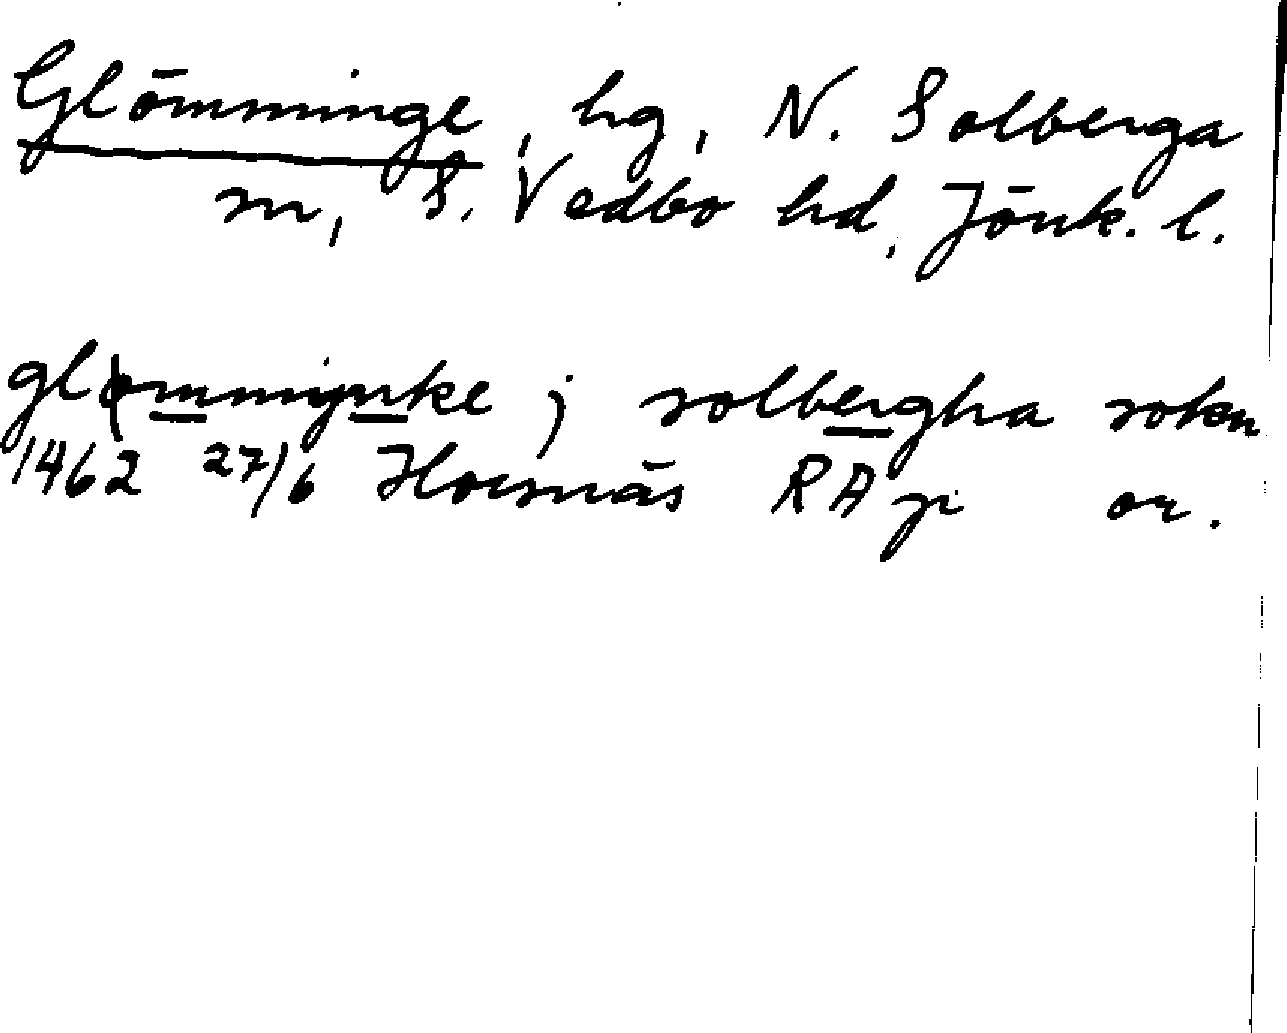 Glömminge, hg, N. Solberga
sn, S. Vedbo hd, Jönk. l.
gløm̲miyn̲ke j solbe̲r̲gha sokn
1462 27/6 Hornäs RAp or.